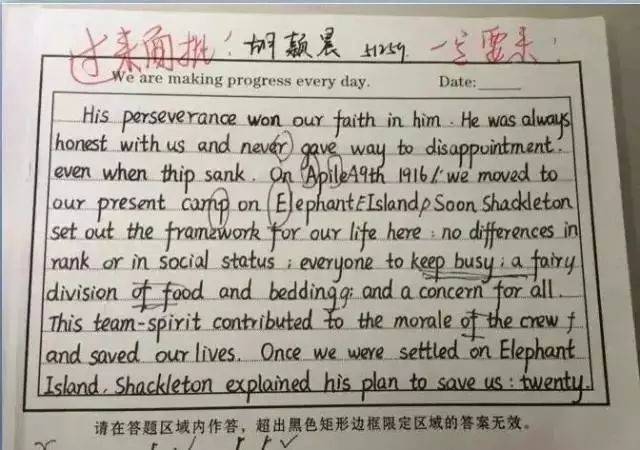 过来面批! 胡颖晨 51259 一定要来!
We are making progress every day. Date:
His perseverance won our faith in him. He was always
honest with us and never gave way to disappointment.
even when thip sank. On Apile A9th 1916/ we moved to
our present camp on Elephant E Island, Soon Shackleton
set out the framework for our life here : no differences in
rank or in social status ; everyone to keep busy ; a fairy
division of food and beddingg; and a concern for all.
This team-spirit contributed to the morale of the crew f
and saved our lives. Once we were settled on Elephant
Island. Shackleton explained his plan to save us : twenty.
请在答题区域内作答，超出黑色矩形边框限定区域的答案无效。